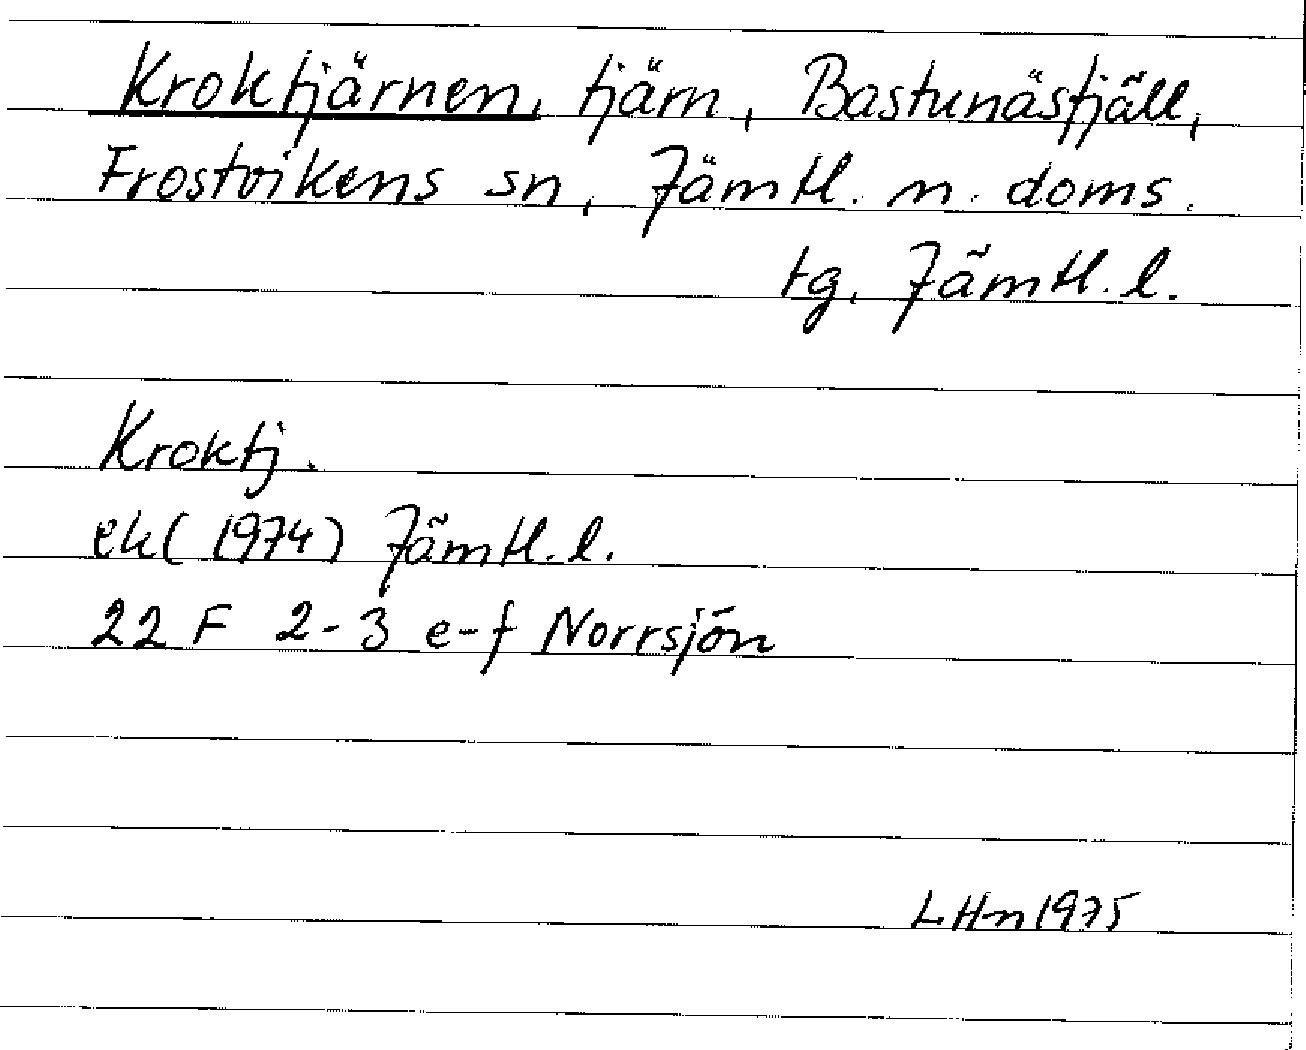 Kroktjärnen, tjärn, Bastunäsfjäll,
Frostvikens sn, Jämtl. n. doms.
tg, Jämtl. l.
Kroktj.
ek (1974) Jämtl. l.
22 F 2-3 e-f Norrsjön
LHn 1975